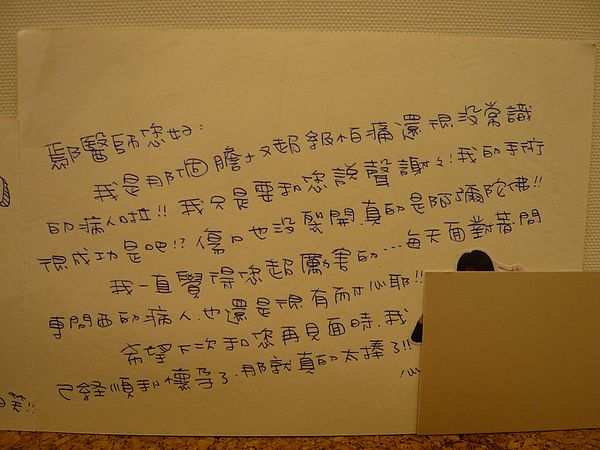 鄔醫師您好：
我是那個膽小又超級怕痛還很沒常識
的病人啦!! 我只是要和您說聲謝々!我的手術
很成功是吧!? 傷口也沒裂開.真的是阿彌陀佛!!
我一直覺得您超厲害的...每天面對著問
東問西的病人.也還是很有耐心耶!!
希望下次和您再見面時.我
已經順利懷孕了.那就真的太棒了!!